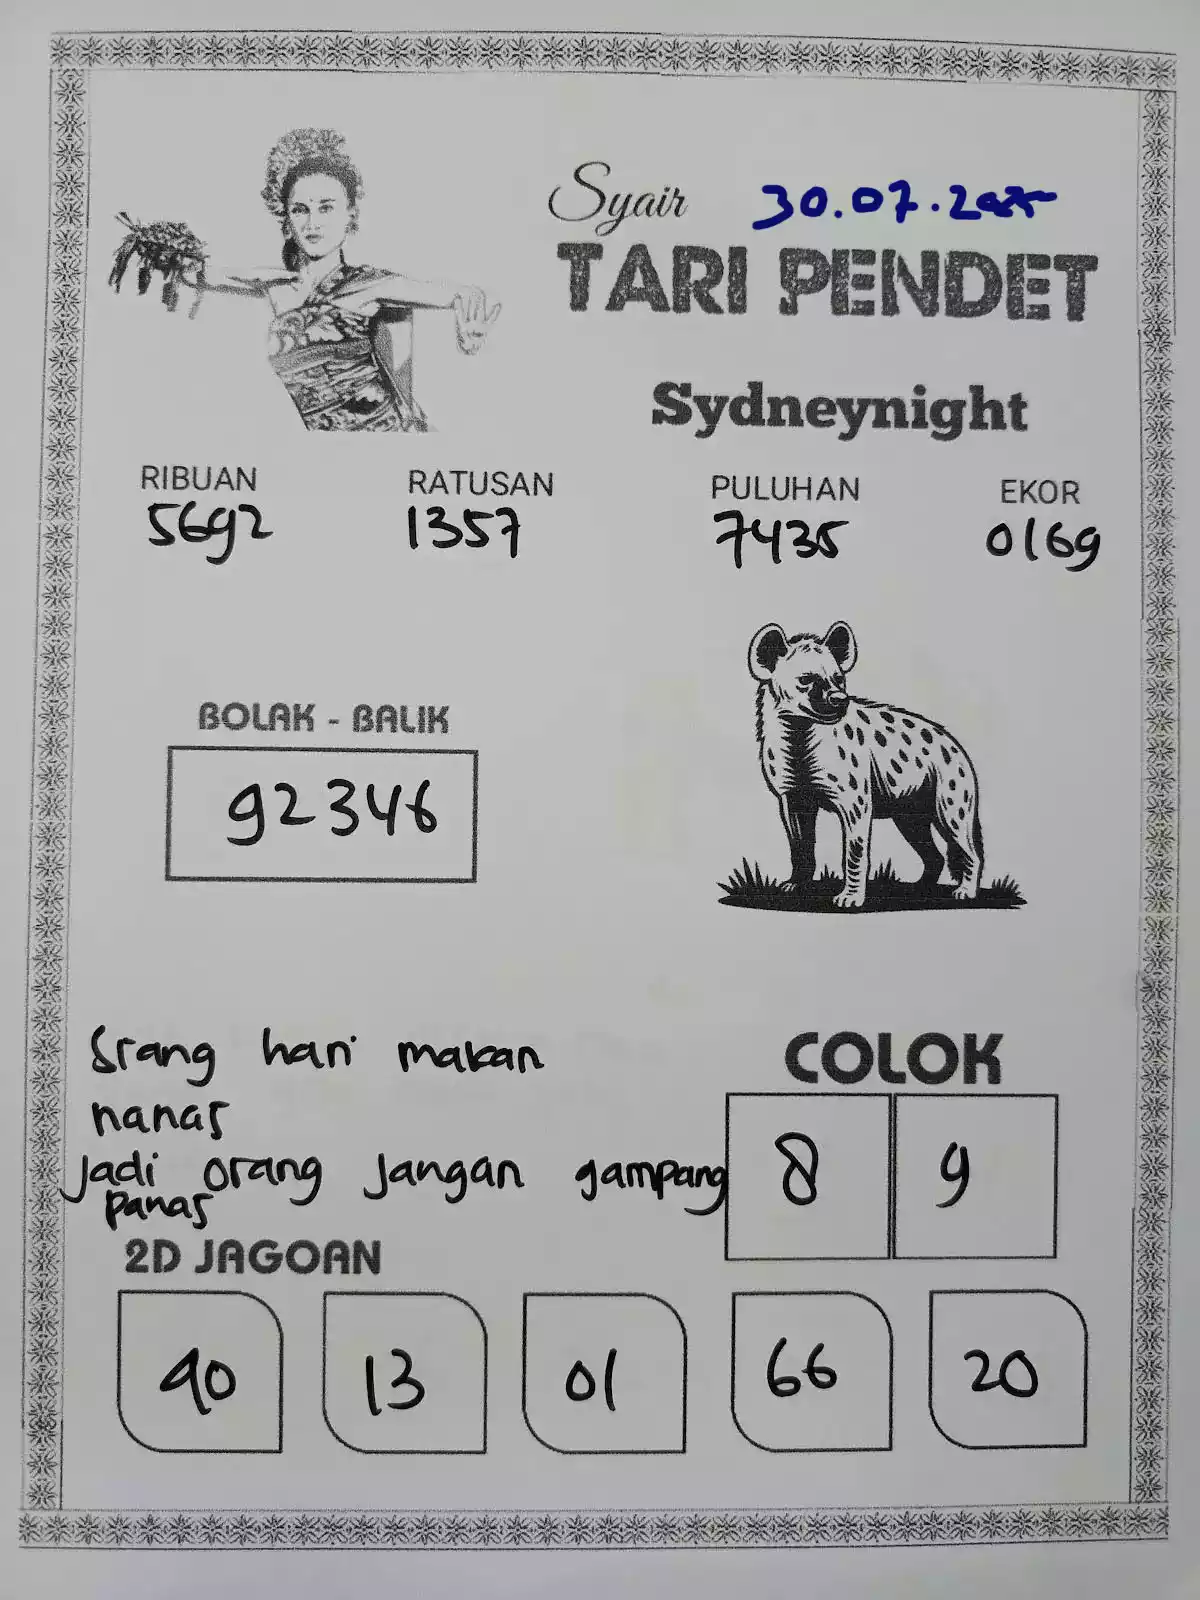 Syair 30.07.2025
TARI PENDET
Sydneynight
RIBUAN RATUSAN PULUHAN EKOR
5692 1357 7435 0169
BOLAK - BALIK
92346
Srang hari makan
nanas
COLOK
8 9
Jadi orang jangan gampang
panas
2D JAGOAN
90 13 01 66 20